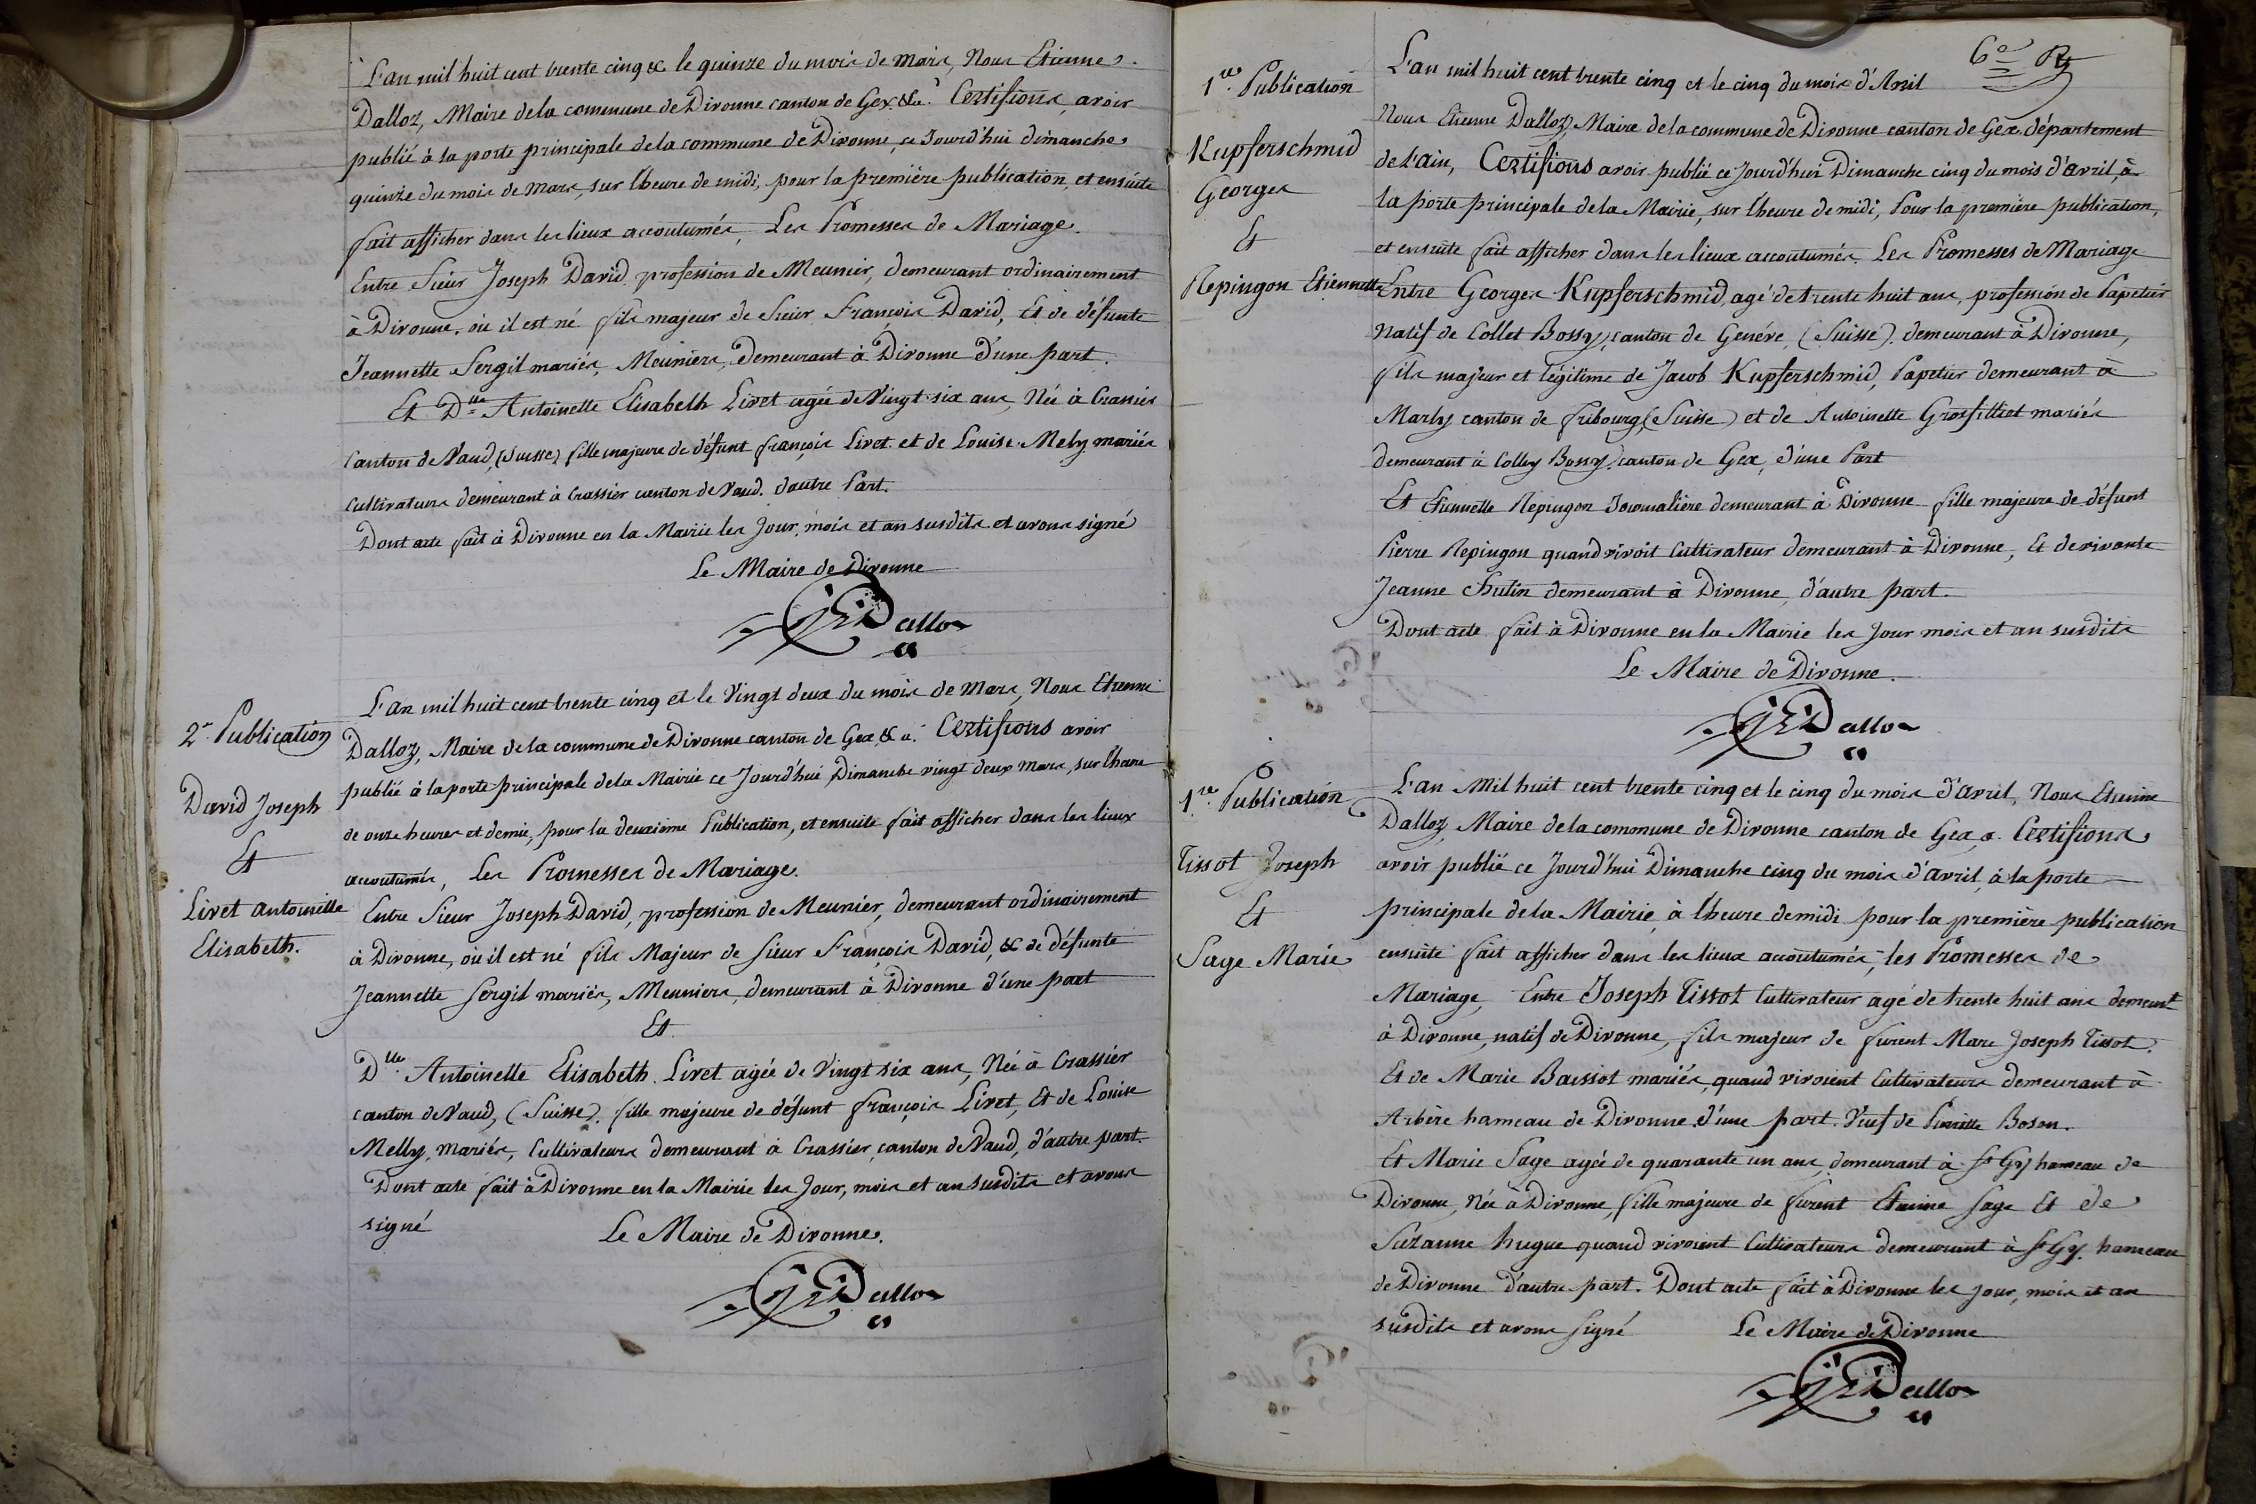 L'an mil huit cent trente cinq & le quinze du mois de Mars, Nous Etienne
Dalloz, Maire de la commune de Divonne canton de Gex &a. Certifions avoir
publié à la porte principale de la commune de Divonne, ce Jourd'hui dimanche
quinze du mois de Mars, sur l'heure de midi, pour la première publication, et ensuite
fait afficher dans les lieux accoutumés, Les Promesses de Mariage.
Entre Sieur Joseph David profession de Meunier, demeurant ordinairement
à Divonne, où il est né fils majeur de Sieur François David, Et de défunte
Jeannette Sergil mariés, Meuniers, demeurant à Divonne d'une part.
Et Dlle Antoinette Elisabeth Livet agée de Vingt six ans, Née à Crassier
Canton de Vaud, (Suisse) fille majeure de défunt françois Livet et de Louise Mely mariés
Cultivateurs demeurant à Crassier canton de Vaud. d'autre Part.
Dont acte fait à Divonne en la Mairie les Jour, mois et an susdits et avons signé
Le Maire de Divonne
Dalloz
2e Publication
David Joseph
Et
Livet Antoinette
Elisabeth.
L'an mil huit cent trente cinq et le Vingt deux du mois de Mars, Nous Etienne
Dalloz, Maire de la commune de Divonne canton de Gex & a. Certifions avoir
publié à la porte principale de la Mairie ce Jourd'hui Dimanche vingt deux Mars, sur l'heure
de onze heures et demie, pour la deuxième Publication, et ensuite fait afficher dans les lieux
accoutumés, Les Promesses de Mariage.
Entre Sieur Joseph David, profession de Meunier, demeurant ordinairement
à Divonne, où il est né fils Majeur de Sieur François David, & de défunte
Jeannette Sergil mariés, Meuniers, demeurant à Divonne d'une part
Et
Dlle Antoinette Elisabeth Livet agée de Vingt six ans, Née à Crassier
canton de Vaud, (Suisse). fille majeure de défunt françois Livet, Et de Louise
Melly, mariés, Cultivateurs demeurant à Crassier, canton de Vaud, d'autre part.
Dont acte fait à Divonne en la Mairie les Jour, mois et an susdits et avons
signé
Le Maire de Divonne.
Dalloz
6e
1re Publication
Kupferschmid
Georges
Et
Repingon Etiennette
L'an mil huit cent trente cinq et le cinq du mois d'Avril
Nous Etienne Dalloz, Maire de la commune de Divonne canton de Gex département
de l'ain, Certifions avoir publié ce Jourd'hui Dimanche cinq du mois d'avril, à
la porte principale de la Mairie, sur l'heure de midi, Pour la première publication,
et ensuite fait afficher dans les lieux accoutumés. Les Promesses de Mariage
Entre Georges Kupferschmid, agé de trente huit ans, profession de Papetier
Natif de Collet Bossy, canton de Genéve, (Suisse). demeurant à Divonne,
fils majeur et légitime de Jacob Kupferschmid, Papetier demeurant à
Marly canton de fribourg, (Suisse) et de Antoinette Grosfilliot mariés
demeurant à Colley Bossy, canton de Gex, d'une Part
Et Etiennette Repingon Journalière demeurant à Divonne fille majeure de défunt
Pierre Repingon quand vivoit Cultivateur demeurant à Divonne, Et de vivante
Jeanne Chulin demeurant à Divonne, d'autre part.
Dont acte fait à Divonne en la Mairie les Jour mois et an susdits
Le Maire de Divonne.
Dalloz
1re Publication
Tissot Joseph
Et
Sage Marie
L'an Mil huit cent trente cinq et le cinq du mois d'avril, Nous Etienne
Dalloz, Maire de la commune de Divonne canton de Gex, a. Certifions
avoir publié ce Jourd'hui Dimanche cinq du mois d'avril, à la porte
principale de la Mairie, à l'heure de midi pour la première publication
ensuite fait afficher dans les lieux accoutumés, les Promesses de
Mariage, Entre Joseph Tissot Cultivateur agé de trente huit ans demeurt
à Divonne, natif de Divonne, fils majeur de furent Marc Joseph Tissot.
Et de Marie Bassiot mariés, quand vivoient Cultivateurs demeurant à
Arbère hameau de Divonne d'une part. Veuf de Pierrette Boson.
Et Marie Sage agée de quarante un ans, demeurant à St Gy hameau de
Divonne, Née à Divonne, fille majeure de furent Etienne Sage Et de
Suzanne hugue quand vivoient Cultivateurs demeurant à St Gy. hameau
de Divonne d'autre part. Dont acte fait à Divonne les jour, mois et an
susdits et avons signé
Le Maire de Divonne
Dalloz